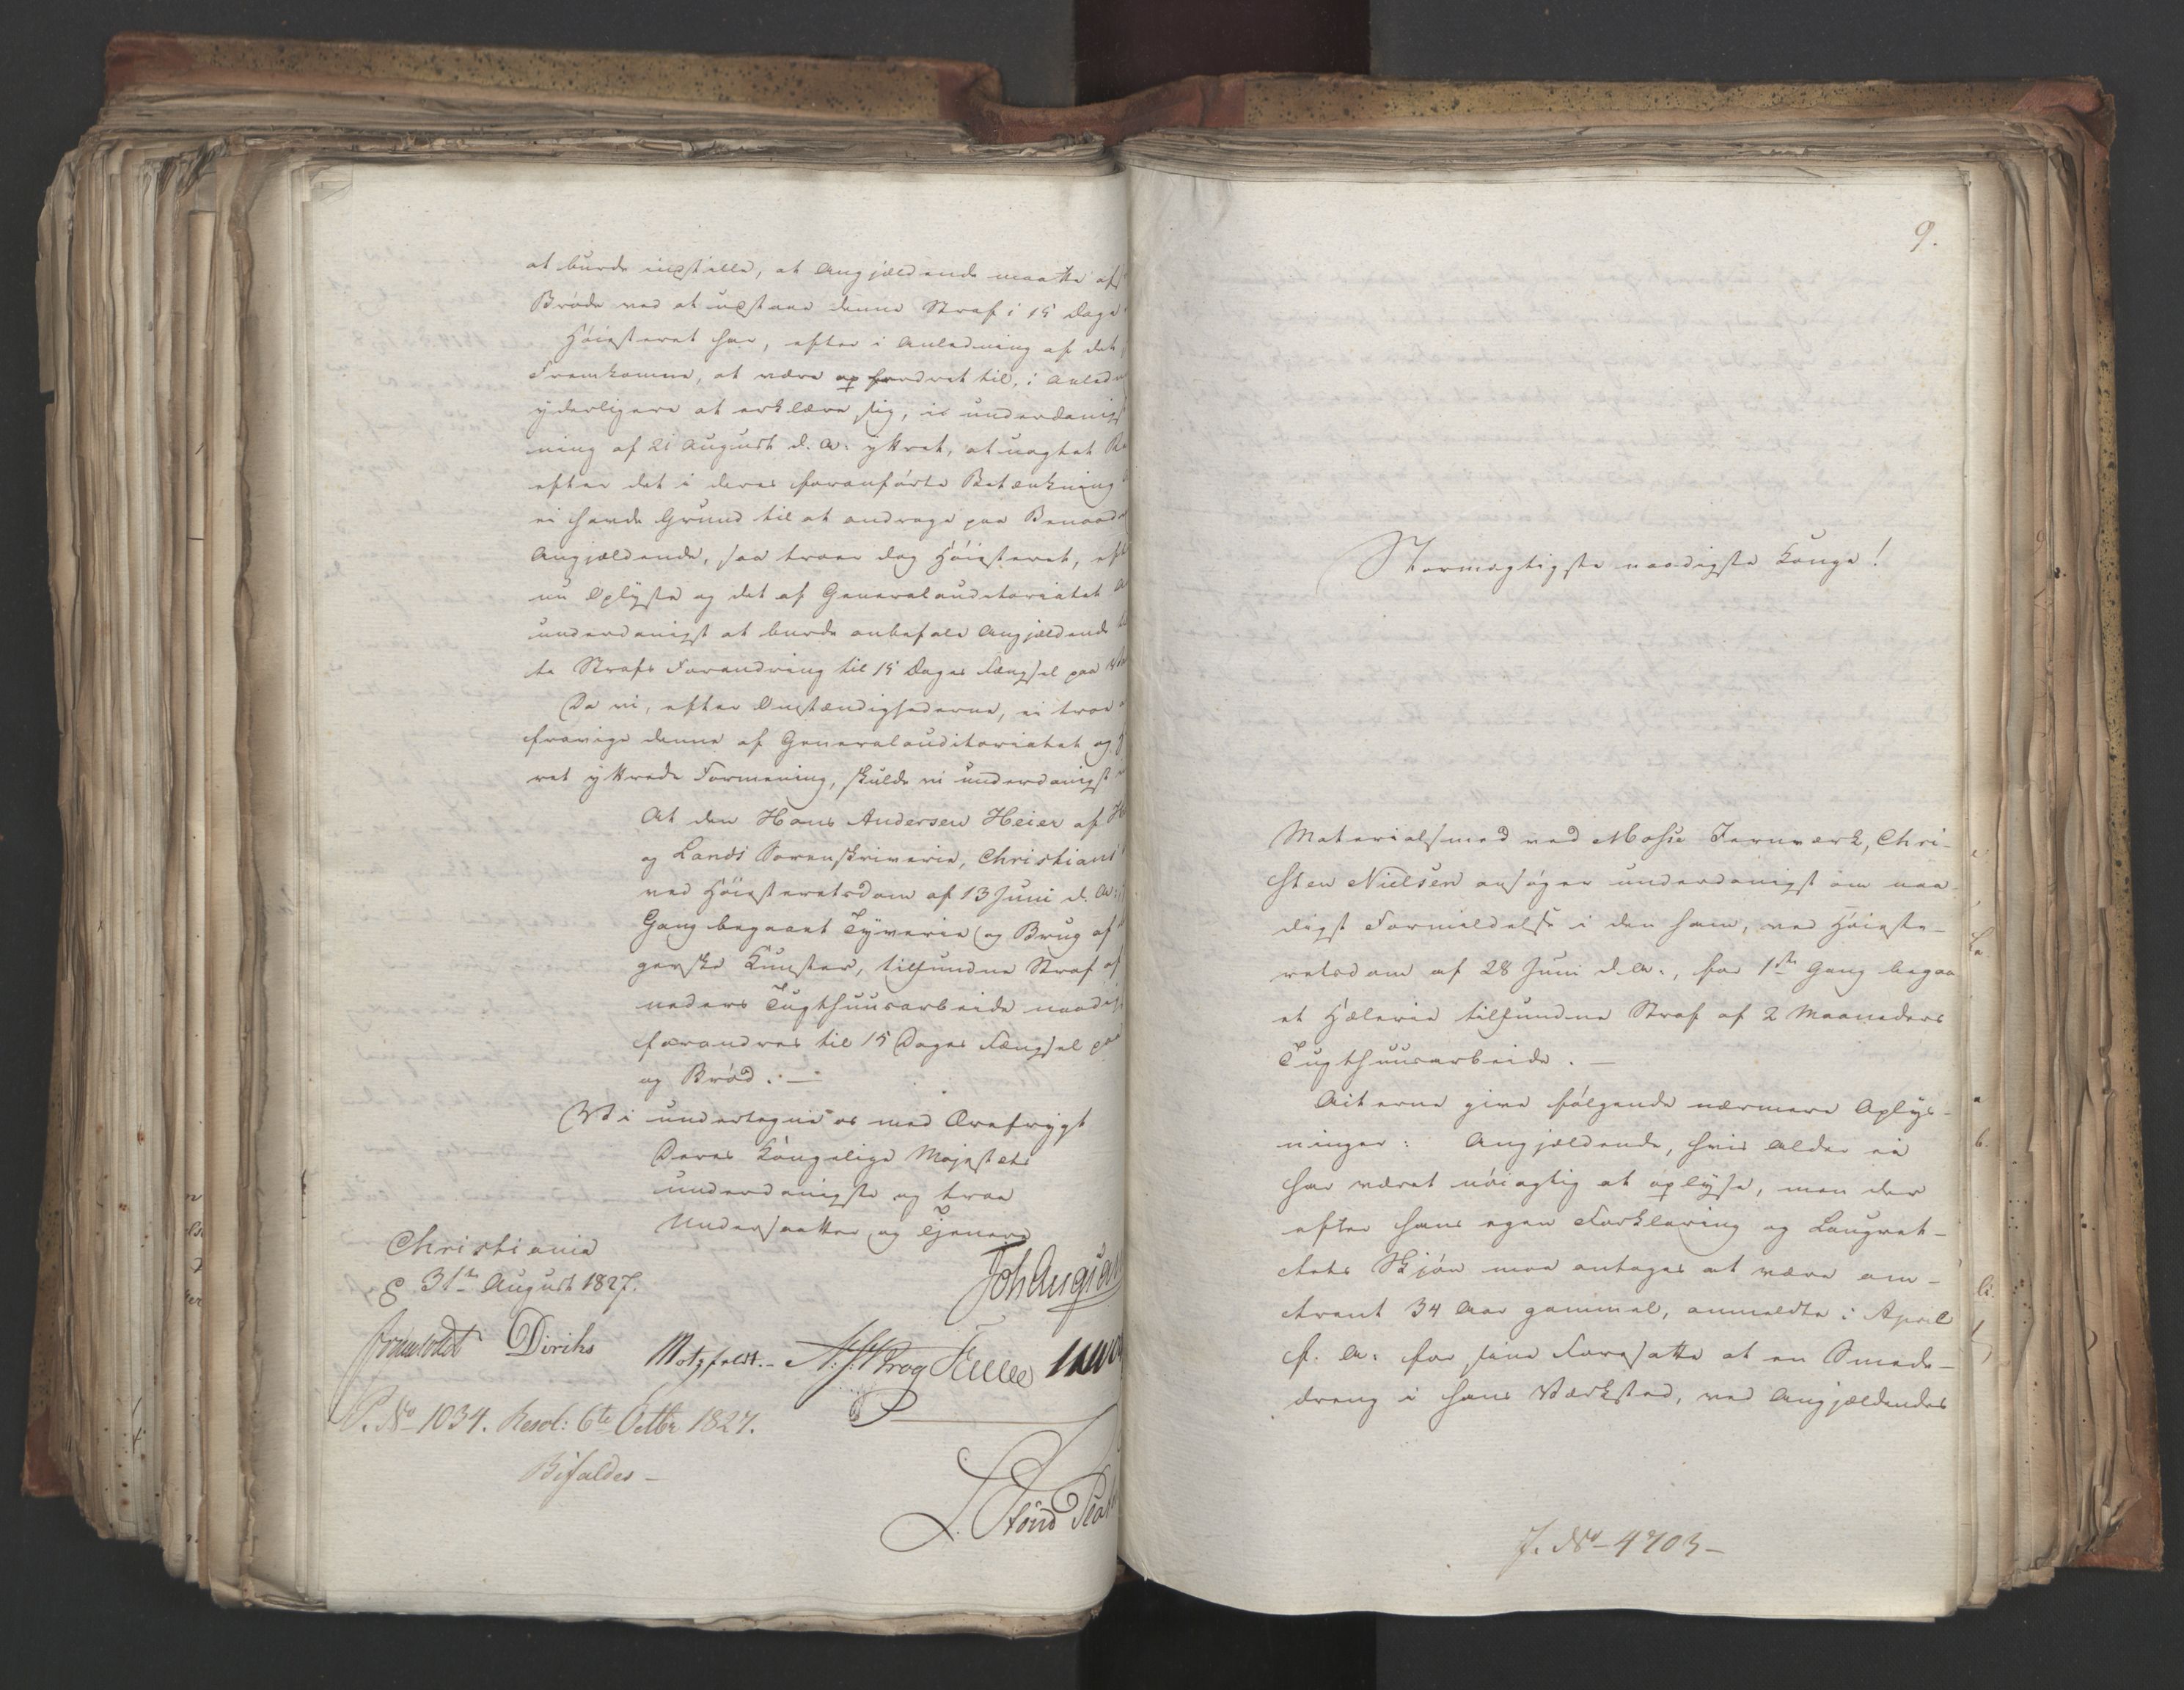 at burde indstille, at Angjældende maatte afs
Brøde ved at udstaae denne Straf i 15 Dage
Høiesteret har, efter i Anledning af det
Fremkomne, at være opfordret til, i Anledn
yderligere at erklære sig, i underdanigst
ning af 21 August d. A. yttret, at uagtet Re
efter det i deres foranførte Betænkning
ei havde Grund til at andrage paa Benaad
Angjældende, saa troer dog Høiesteret, eft
nu Oplyste og det af Generalauditoriatet A
underdanigst at burde anbefale Angjældende
te Strafs Forandring til 15 Dages Fængsel paa
Da vi, efter Omstændighederne, ei troe
fravige denne af Generalauditoriatet og
ret yttrede Formening, skulde vi underdanigst
At den Hans Andersen Heier af
og Lands Sorenskriverie, Christians
ved Høiesteretsdom af 13 Juni d. A.
Gang begaaet Tyverie og Brug af
gerske Kunster, tilfundne Straf af
neders Tugthuusarbeide naadigst
forandres til 15 Dages Fængsel paa
og Brød. —
Vi undertegne os med Ærefrygt
Deres Kongelige Majestets
underdanigste og troe
Undersaatter og Tjenere
Christiania
31te August 1827.
Joh Collett
Diriks Motzfeldt. Krog
P. No 1034. Resol: 6te Octbr 1827.
Bifaldes —
9.
Stormægtigste naadigste Konge!
Materialsmed ved Mosse Jernværk, Chri-
sten Nielsen ansøger underdanigst om naa-
digst Formildelse i den ham, ved Høieste-
retsdom af 28 Juni d. A., for 1ste Gang begaa
et Hælerie tilfundne Straf af 2 Maaneders
Tugthuusarbeide. —
Acterne give følgende nærmere Oplys-
ninger: Angjældende, hvis Alder ei
har været nøiagtig at oplyse, men der
efter hans egen Forklaring og Laugret-
tets Skjøn maa antages at være om-
trent 34 Aar gammel, anmeldte i April
f. A. for sine Foresatte at en Smede-
dreng i hans Værksted, ved Angjældendes
J. No 4703 —